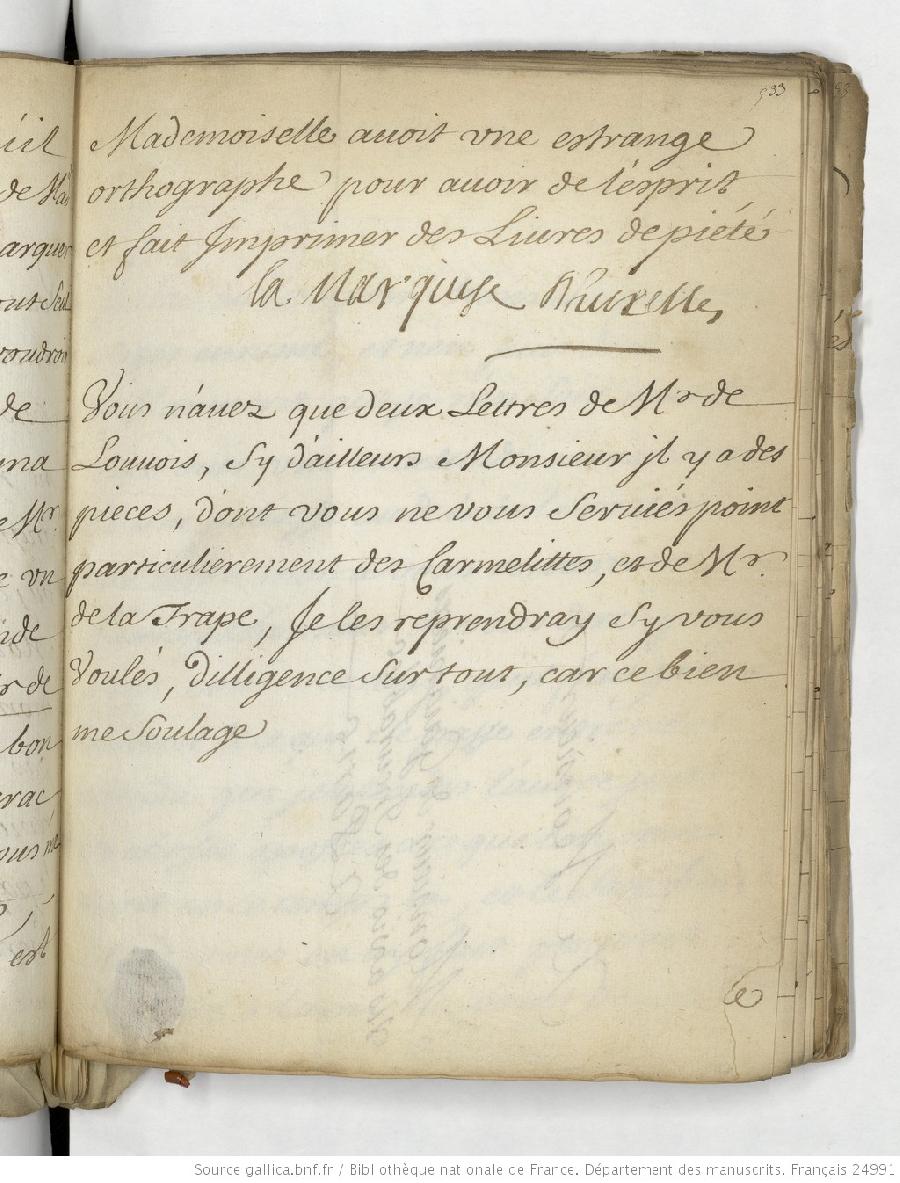 933
Mademoiselle auoit vne estrange
orthographe pour auoir de lésprit
et fait Jmprimer des Liures de piété
la Marquise d'huxelles
Vous náuez que deux Lettres de Mr de
Louuois, sy dáilleurs Monsieur jl y a des
pieces, dónt vous ne vous seruiés point
particulierement des Carmelittes, et de Mr.
de la Trape, Je les reprendray sy vous
Voulés, dilligence sur tout, car ce bien
me soulage
éil
de
arquer
out seul
voudroi
de
ma
e Mr.
e vn
nde
Mr de
bon
rac
ous ne
est
Source gallica.bnf.fr / Bibliothèque nationale de France. Département des manuscrits. Français 24991